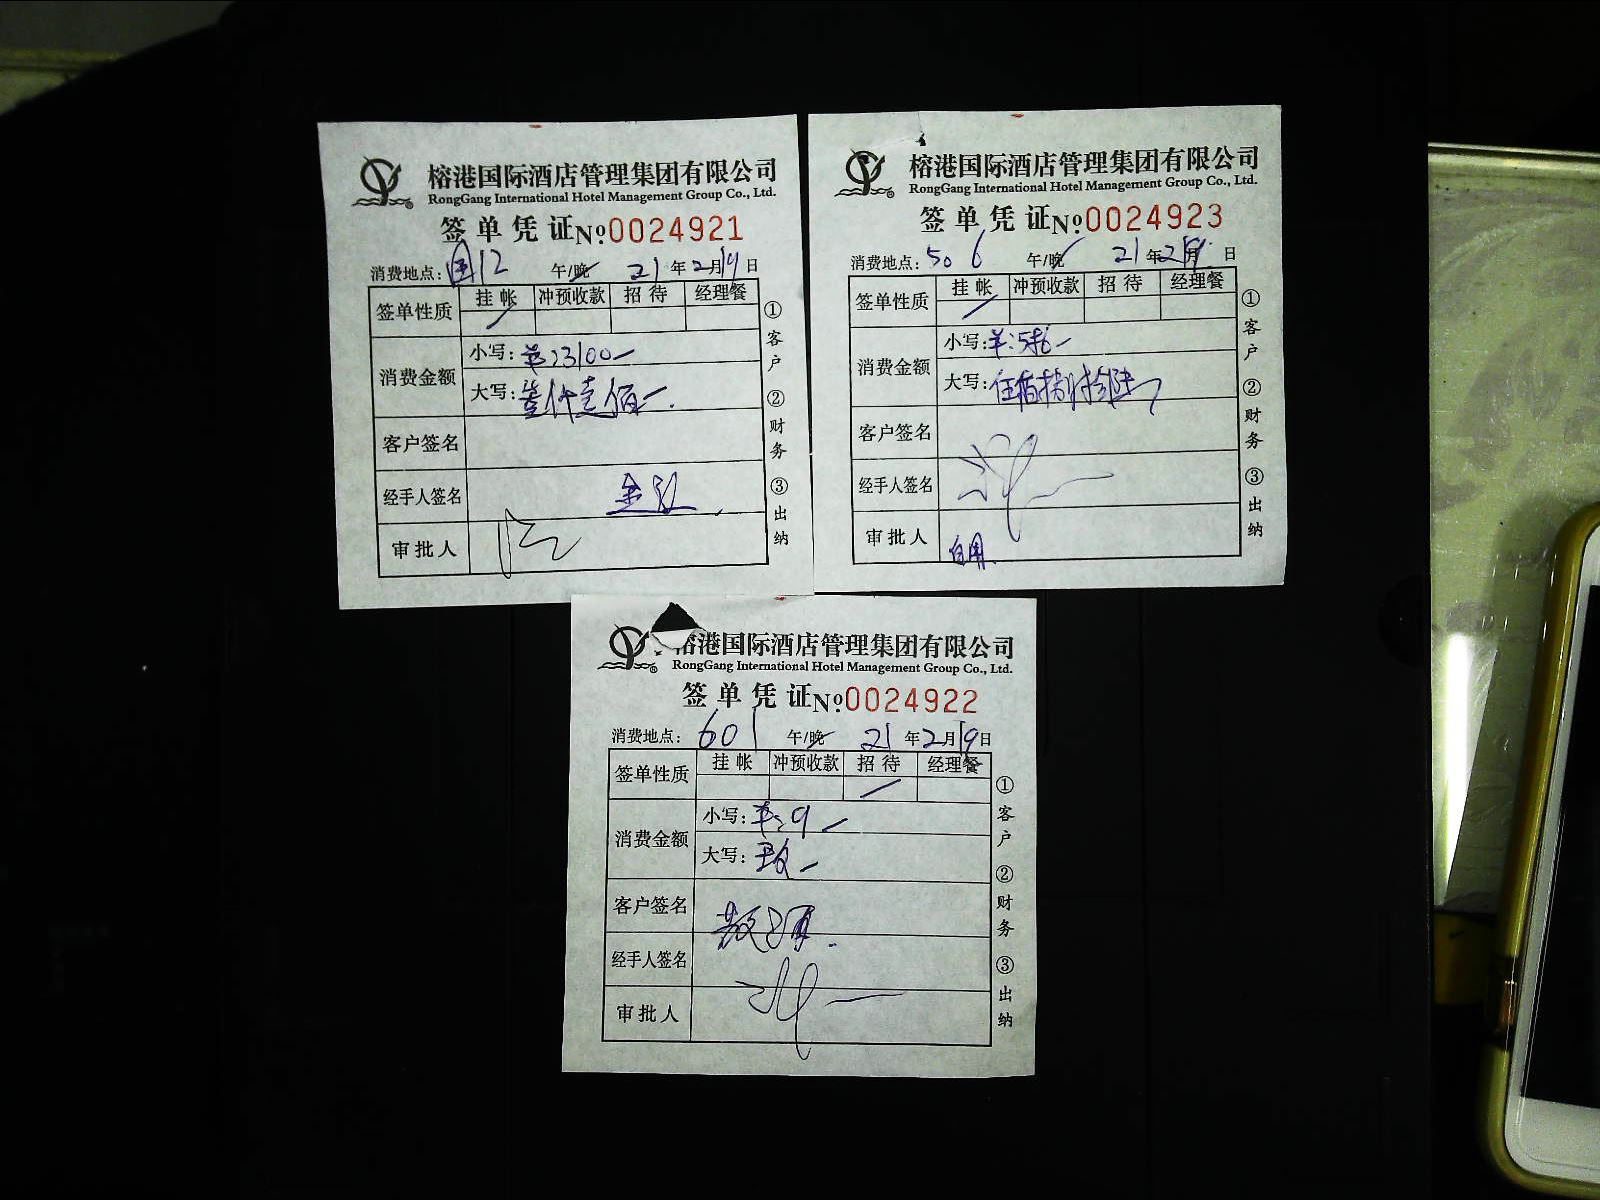 榕港国际酒店管理集团有限公司
RongGang International Hotel Management Group Co., Ltd.
签单凭证 №0024921
消费地点: 国12 午/晚 21年2月19日
签单性质 挂帐 冲预收款 招待 经理餐
消费金额
小写:
大写: 叁仟壹佰
客户签名
经手人签名
审批人
①客户 ②财务 ③出纳
榕港国际酒店管理集团有限公司
RongGang International Hotel Management Group Co., Ltd.
签单凭证 №0024923
消费地点: 506 午/晚 21年2月19日
签单性质 挂帐 冲预收款 招待 经理餐
消费金额
小写:
大写:
客户签名
经手人签名
审批人
①客户 ②财务 ③出纳
榕港国际酒店管理集团有限公司
RongGang International Hotel Management Group Co., Ltd.
签单凭证 №0024922
消费地点: 601 午/晚 21年2月19日
签单性质 挂帐 冲预收款 招待 经理餐
消费金额
小写:
大写:
客户签名
经手人签名
审批人
①客户 ②财务 ③出纳